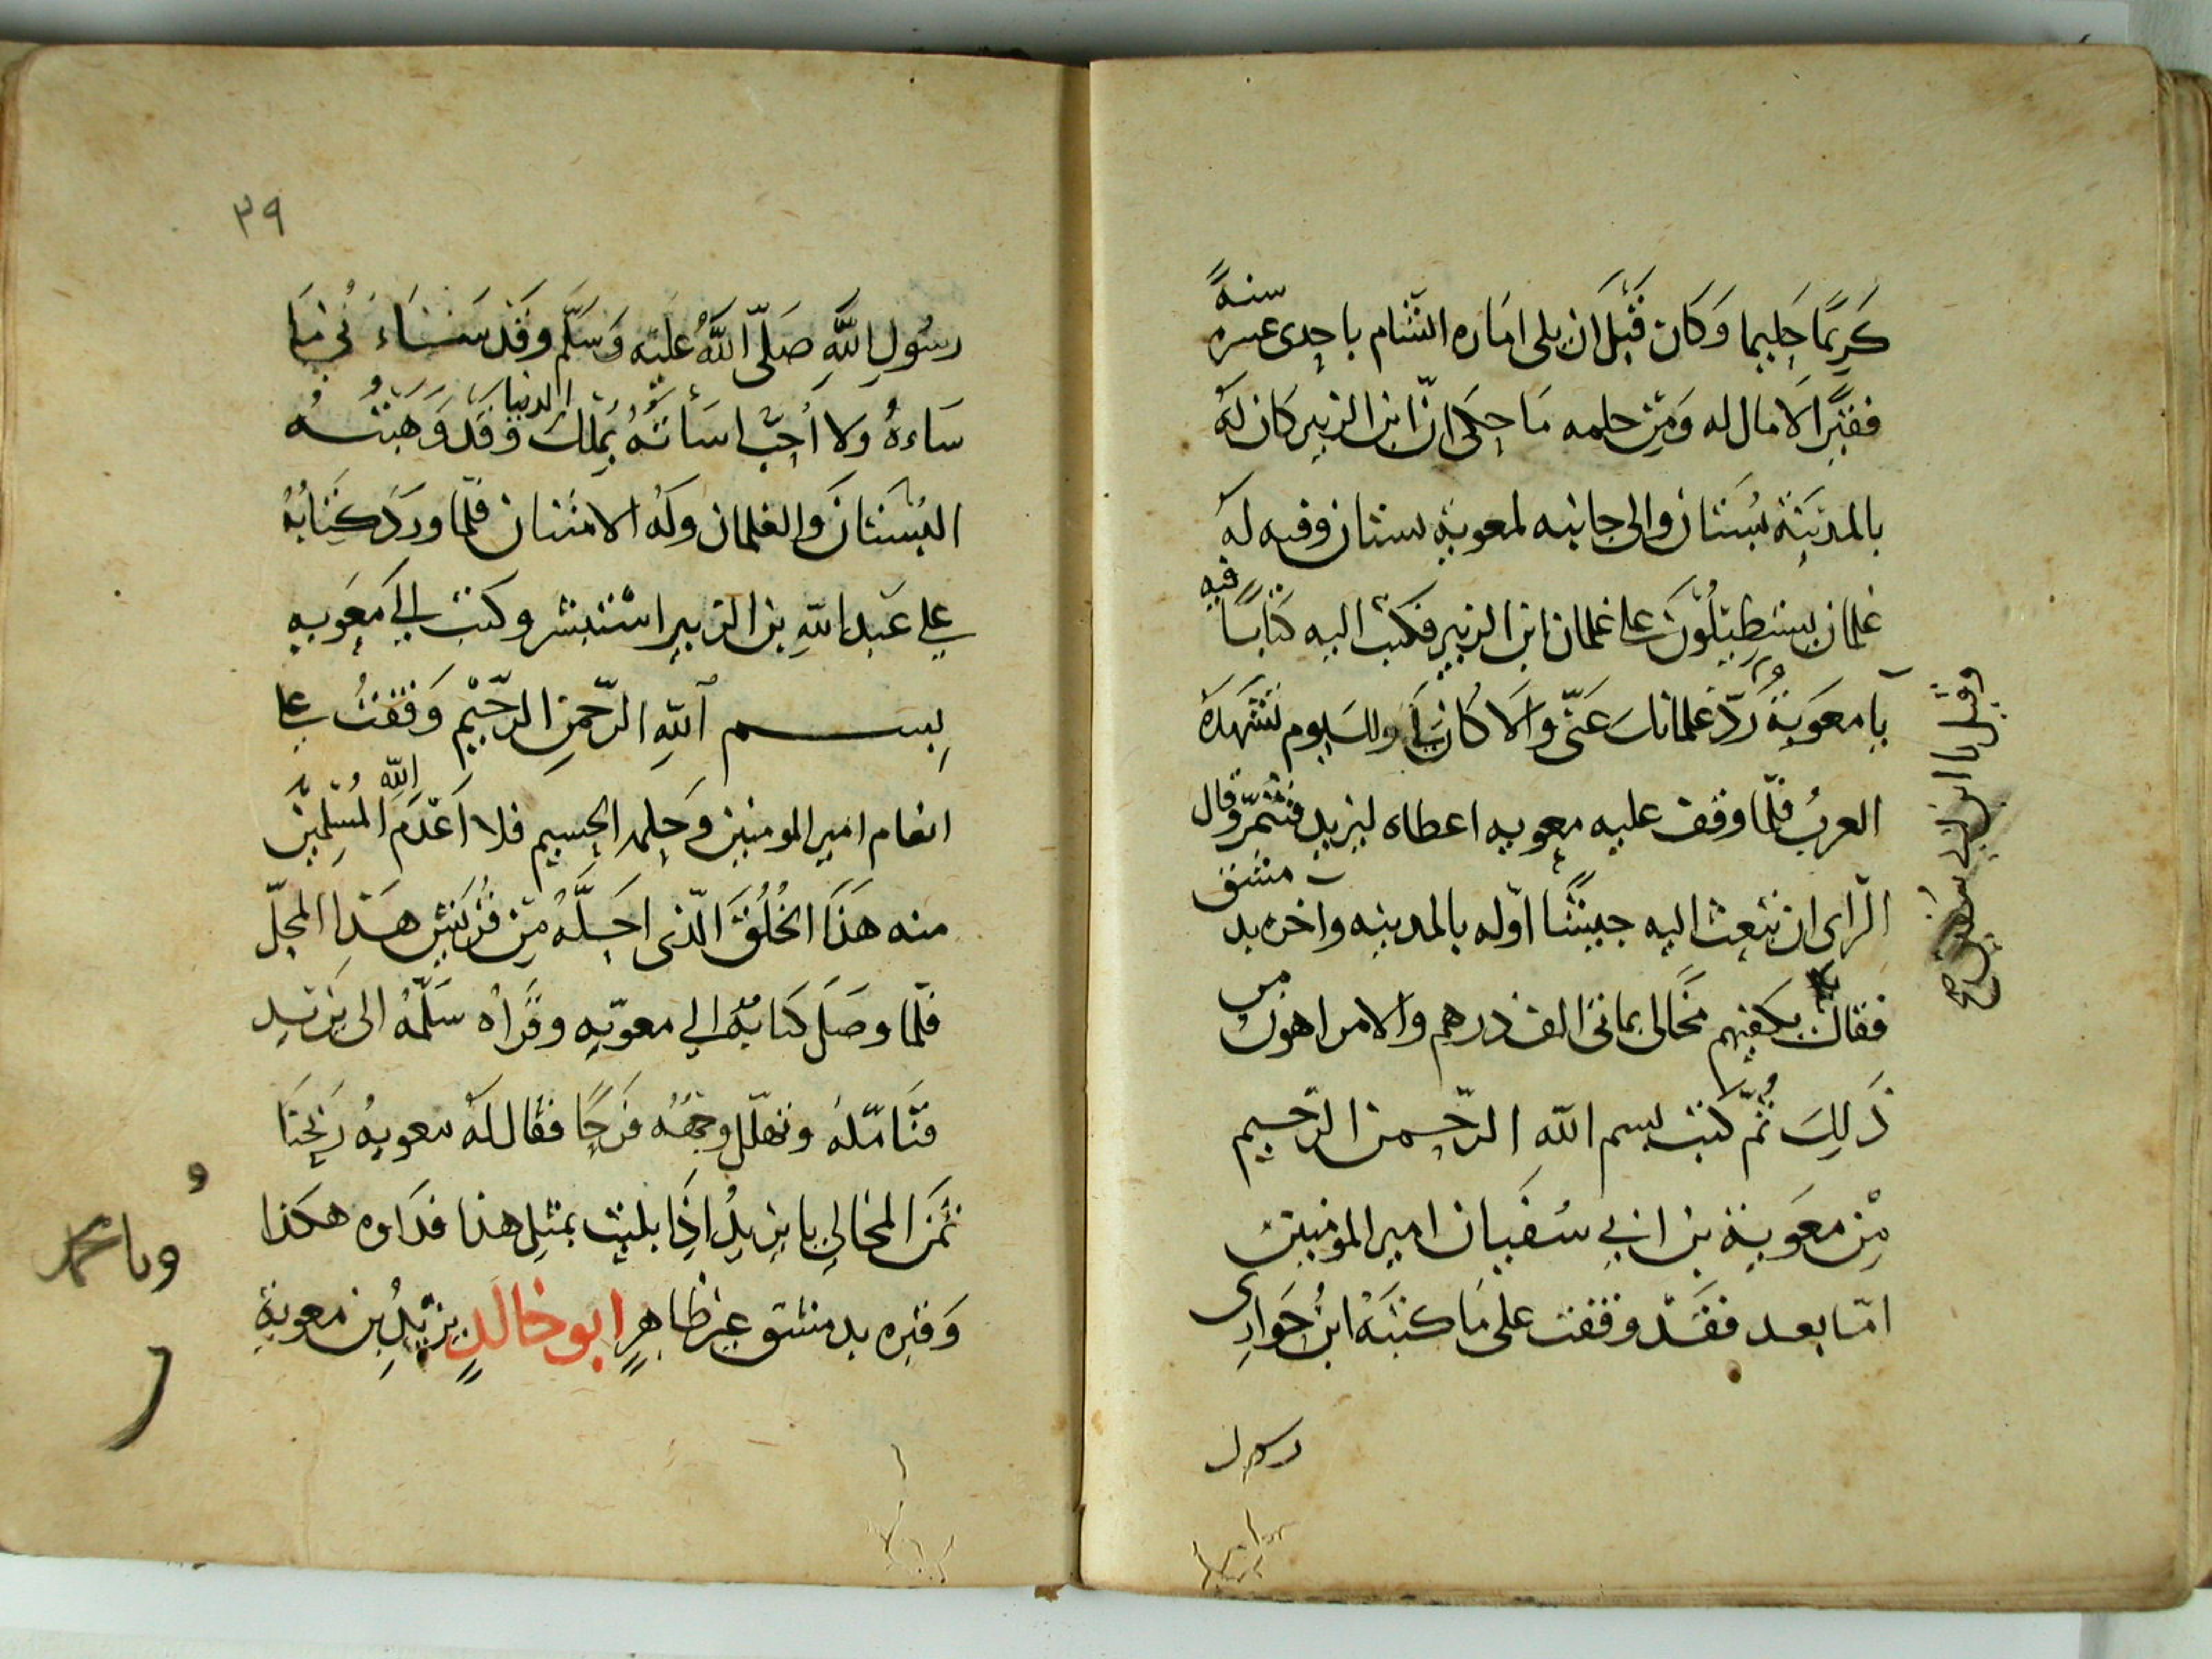 كَرِيمًا حَلِيما وَكَان قَبْلَ ان يلى امَاره الشّام باحدى عسره سنةً
فقيرًا لَا مال له وَمِن حلمه مَا حكَى انّ ابن الزبير كان لَهُ
بالمدينَة بُستَان والى جانبه لمعوية بستان وفيه له
غلمان يستطيلُون على غلمان ابن الزبير فكتب اليه كتابًا فيه
يا معَوِيةُ رُدّ غلمانك عَنّى والّا كان لى ولك يوم تشهدهُ
العربُ فلّما وقف عليه معويه اعطاه ليزيد فتنمّر وقال
الرّاى ان نبعث اليه جيشًا اوّله بالمدينه واخره بد مشق
فقال يكفيهم مخالى بمائتى الف درهم والامر اهون من
ذَلِكَ ثُمّ كتب بسم الله الرّحمن الرّحيم
مِن معَوية بن ابي سُفيان امير المومنين
امّا بعد فقَد وقفت على مَا كتبَهُ ابنُ حَوَارِى
رسول
٣٩
رسُولِ اللَّهِ صَلّى اللَّهُ عَليه وَسَلّم وقَد سَاءَنى مَا
سَاءهُ ولا اُحِبّ اساتهُ بمُلك الدنيا وقَد وَهَبتُه
البُستَانَ وَالغلمان ولَهُ الامتنان فلّما ورَدَ كِتَابُهُ
على عَبدِ اللّهِ بن الزبير استبشر وكتب الى معَويه
بسم اللّهِ الرّحمنِ الرّحِيم وَقفتُ على
انعام امير المومنين وَحلمه الجسيم فلا اَعْدَم اللّه المُسلِمينَ
منه هَذَا الخُلُقَ الّذى احَلَّهُ مِن قُرَيشٍ هَذا المحلّ
فلّما وصَلَ كتابهُ الى معوّيه وقَراهُ سَلّمَهُ الى يَزيد
فتَامّلهُ وتهلّل وجههُ فَرحًا فقال لهُ معويهُ رَبحنَا
ثَمنَ المخالى يا يزيدُ اذَا بليت بمثلِ هذا فدَاوه هكذا
وَقبره بدمشق غير ظاهرٍ ابو خالدٍ يزيدُ بن معوية